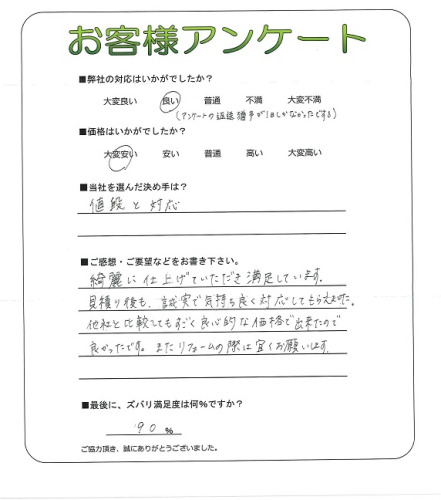 お客様アンケート
■弊社の対応はいかがでしたか？
大変良い 良い 普通 不満 大変不満
(アンケートの返送猶予が1日しかなかったですョ)
■価格はいかがでしたか？
大変安い 安い 普通 高い 大変高い
■当社を選んだ決め手は？
値段と対応
■ご感想・ご要望などをお書き下さい。
綺麗に仕上げていただき満足しています。
見積り後も、誠実で気持ち良く対応してもらえました。
他社と比較してもすごく良心的な価格で出来たので
良かったです。またリフォームの際は宜くお願いします。
■最後に、ズバリ満足度は何%ですか？
90 %
ご協力頂き、誠にありがとうございました。